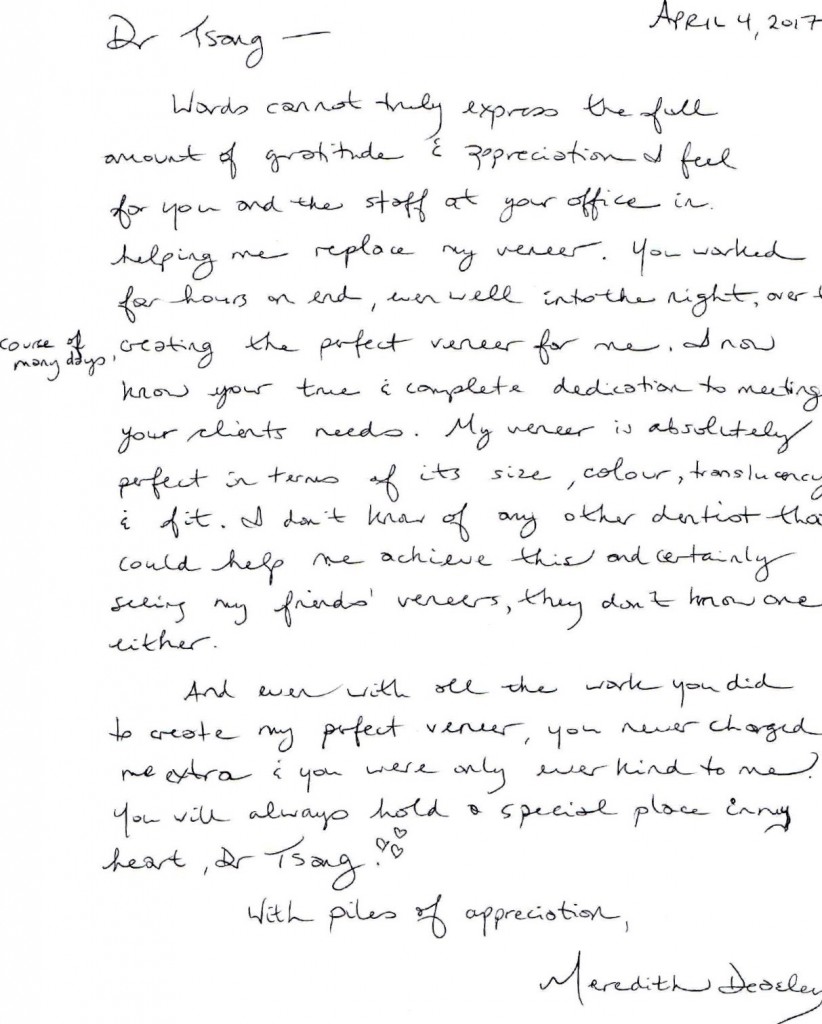 APRIL 4, 2017
Dr Tsang —
Words cannot truly express the full
amount of gratitude & appreciation I feel
for you and the staff at your office in
helping me replace my veneer. You worked
for hours on end, even well into the night, over t
course of
many days,
creating the perfect veneer for me. I now
know your true & complete dedication to meeting
your clients needs. My veneer is absolutely
perfect in terms of its size, colour, translucency
& fit. I don't know of any other dentist tha
could help me achieve this and certainly
seeing my friends' veneers, they don't know one
either.
And even with all the work you did
to create my perfect veneer, you never charged
me extra & you were only ever kind to me.
You will always hold a special place in my
heart, Dr Tsang.
With piles of appreciation,
Meredith Deasley